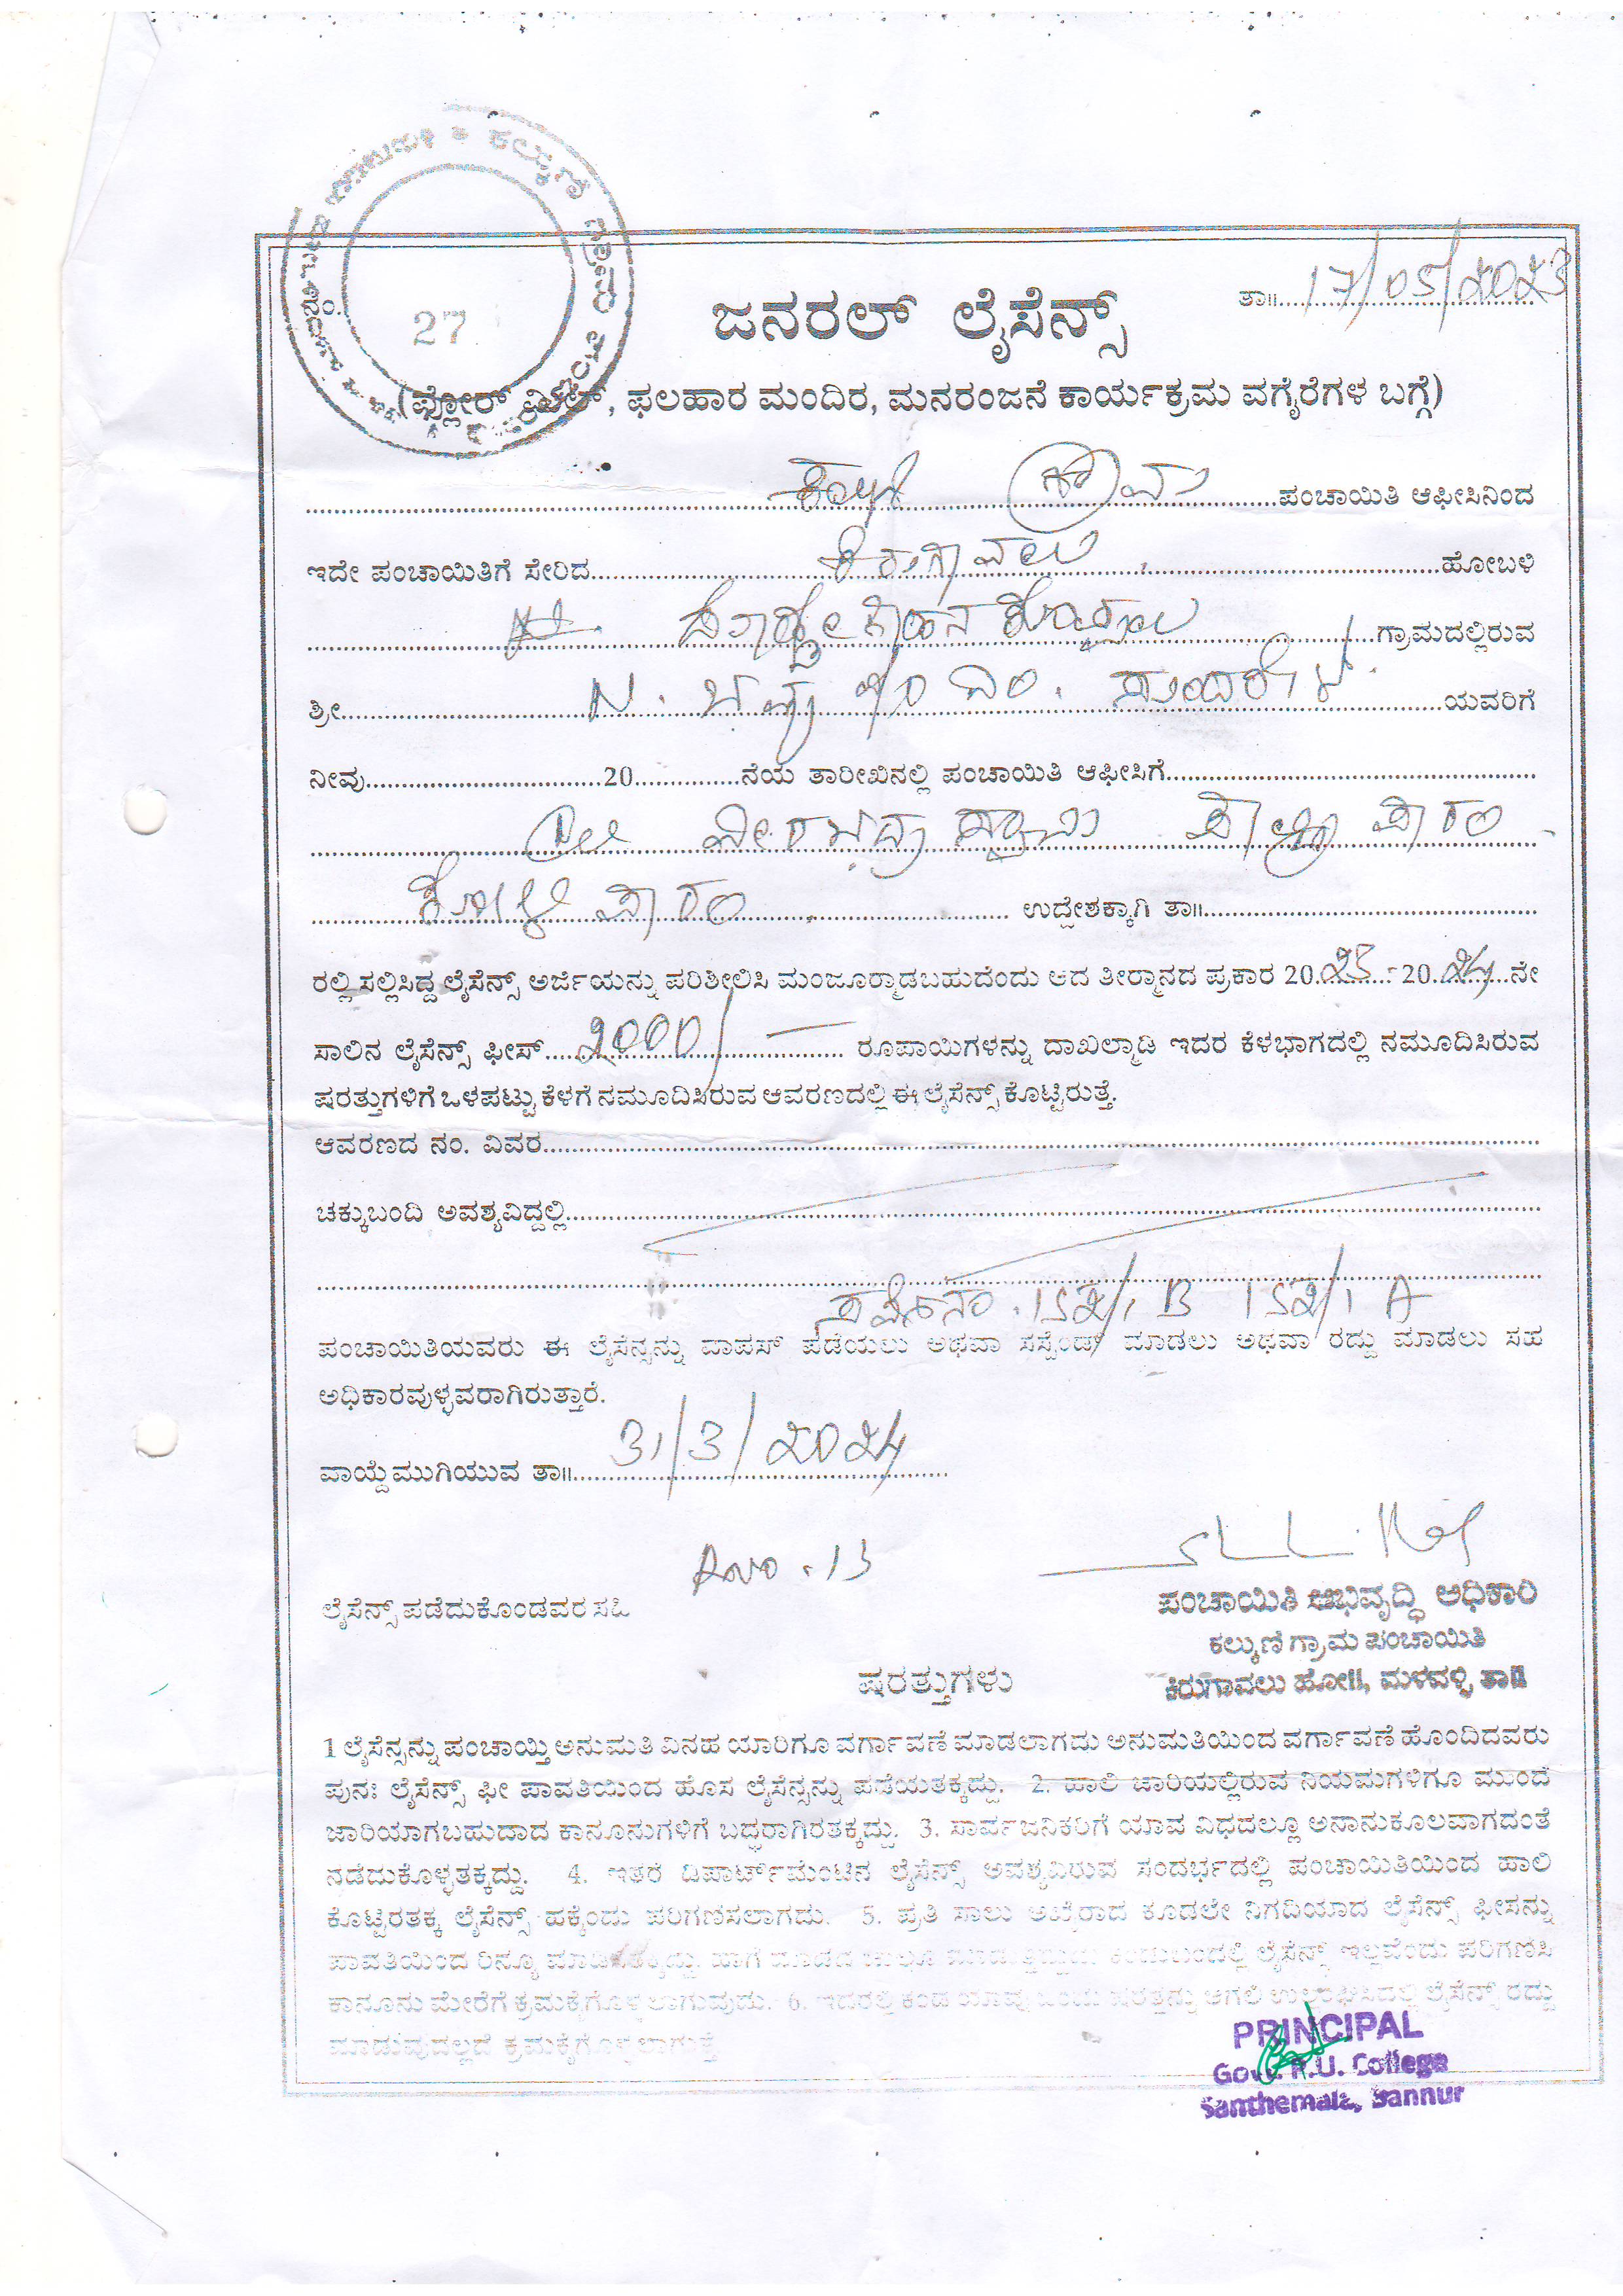 ತಾ॥ 17/05/2023
ನಂ. 27
ಜನರಲ್ ಲೈಸೆನ್ಸ್
(ಫ್ಲೋರ್ ಮಿಲ್, ಫಲಹಾರ ಮಂದಿರ, ಮನರಂಜನೆ ಕಾರ್ಯಕ್ರಮ ವಗೈರೆಗಳ ಬಗ್ಗೆ)
ಪಂಚಾಯಿತಿ ಆಫೀಸಿನಿಂದ
ಇದೇ ಪಂಚಾಯಿತಿಗೆ ಸೇರಿದ ಕಿರುಗಾವಲು ಹೋಬಳಿ
ಗ್ರಾಮದಲ್ಲಿರುವ
ಶ್ರೀ N. ಯವರಿಗೆ
ನೀವು 20 ನೆಯ ತಾರೀಖಿನಲ್ಲಿ ಪಂಚಾಯಿತಿ ಆಫೀಸಿಗೆ
ಶ್ರೀ ವೀರಭದ್ರಸ್ವಾಮಿ ಫಾರಂ
ಕೋಳಿ ಫಾರಂ ಉದ್ದೇಶಕ್ಕಾಗಿ ತಾ॥
ರಲ್ಲಿ ಸಲ್ಲಿಸಿದ್ದ ಲೈಸೆನ್ಸ್ ಅರ್ಜಿಯನ್ನು ಪರಿಶೀಲಿಸಿ ಮಂಜೂರ್‍ಮಾಡಬಹುದೆಂದು ಆದ ತೀರ್‍ಮಾನದ ಪ್ರಕಾರ 2023 - 2024 ನೇ
ಸಾಲಿನ ಲೈಸೆನ್ಸ್ ಫೀಸ್ 2000/- ರೂಪಾಯಿಗಳನ್ನು ದಾಖಲ್ಮಾಡಿ ಇದರ ಕೆಳಭಾಗದಲ್ಲಿ ನಮೂದಿಸಿರುವ
ಷರತ್ತುಗಳಿಗೆ ಒಳಪಟ್ಟು ಕೆಳಗೆ ನಮೂದಿಸಿರುವ ಆವರಣದಲ್ಲಿ ಈ ಲೈಸೆನ್ಸ್ ಕೊಟ್ಟಿರುತ್ತೆ.
ಆವರಣದ ನಂ. ವಿವರ
ಚಕ್ಕುಬಂದಿ ಅವಶ್ಯವಿದ್ದಲ್ಲಿ
ಸರ್ವೆ ನಂ. 152/1 B 152/1 A
ಪಂಚಾಯಿತಿಯವರು ಈ ಲೈಸೆನ್ಸನ್ನು ವಾಪಸ್ ಪಡೆಯಲು ಅಥವಾ ಸಸ್ಪೆಂಡ್ ಮಾಡಲು ಅಥವಾ ರದ್ದು ಮಾಡಲು ಸಹ
ಅಧಿಕಾರವುಳ್ಳವರಾಗಿರುತ್ತಾರೆ.
ವಾಯ್ದೆ ಮುಗಿಯುವ ತಾ॥ 31/3/2024
ಲೈಸೆನ್ಸ್ ಪಡೆದುಕೊಂಡವರ ಸಹಿ
ಪಂಚಾಯಿತಿ ಅಭಿವೃದ್ಧಿ ಅಧಿಕಾರಿ
ಕಲ್ಕುಣಿ ಗ್ರಾಮ ಪಂಚಾಯಿತಿ
ಕಿರುಗಾವಲು ಹೋ॥, ಮಳವಳ್ಳಿ ತಾ॥
ಷರತ್ತುಗಳು
1 ಲೈಸೆನ್ಸನ್ನು ಪಂಚಾಯ್ತಿ ಅನುಮತಿ ವಿನಹ ಯಾರಿಗೂ ವರ್ಗಾವಣೆ ಮಾಡಲಾಗದು ಅನುಮತಿಯಿಂದ ವರ್ಗಾವಣೆ ಹೊಂದಿದವರು
ಪುನಃ ಲೈಸೆನ್ಸ್ ಫೀ ಪಾವತಿಯಿಂದ ಹೊಸ ಲೈಸೆನ್ಸನ್ನು ಪಡೆಯತಕ್ಕದ್ದು. 2. ಹಾಲಿ ಜಾರಿಯಲ್ಲಿರುವ ನಿಯಮಗಳಿಗೂ ಮುಂದೆ
ಜಾರಿಯಾಗಬಹುದಾದ ಕಾನೂನುಗಳಿಗೆ ಬದ್ಧರಾಗಿರತಕ್ಕದ್ದು. 3. ಸಾರ್ವಜನಿಕರಿಗೆ ಯಾವ ವಿಧದಲ್ಲೂ ಅನಾನುಕೂಲವಾಗದಂತೆ
ನಡೆದುಕೊಳ್ಳತಕ್ಕದ್ದು. 4. ಇತರೆ ಡಿಪಾರ್ಟ್‌ಮೆಂಟಿನ ಲೈಸೆನ್ಸ್ ಅವಶ್ಯವಿರುವ ಸಂದರ್ಭದಲ್ಲಿ ಪಂಚಾಯಿತಿಯಿಂದ ಹಾಲಿ
ಕೊಟ್ಟಿರತಕ್ಕ ಲೈಸೆನ್ಸ್ ಹಕ್ಕೆಂದು ಪರಿಗಣಿಸಲಾಗದು. 5. ಪ್ರತಿ ಸಾಲು ಆಖೈರಾದ ಕೂಡಲೇ ನಿಗದಿಯಾದ ಲೈಸೆನ್ಸ್ ಫೀಸನ್ನು
ಪಾವತಿಯಿಂದ ರಿನ್ಯೂ ಲೈಸೆನ್ಸ್ ಇಲ್ಲವೆಂದು ಪರಿಗಣಿಸಿ
ಕಾನೂನು ಮೇರೆಗೆ ಕ್ರಮಕೈಗೊಳ್ಳಲಾಗುವುದು. 6. ಇದರಲ್ಲಿ ಕಂಡ ಯಾವುದೊಂದು ಷರತ್ತನ್ನು ಆಗಲಿ ಉಲ್ಲಂಘಿಸಿದಲ್ಲಿ ಲೈಸೆನ್ಸ್ ರದ್ದು
ಮಾಡುವುದಲ್ಲದೆ ಕ್ರಮಕೈಗೊಳ್ಳಲಾಗುತ್ತೆ
PRINCIPAL
Govt. P.U. College
Santhemala, Bannur